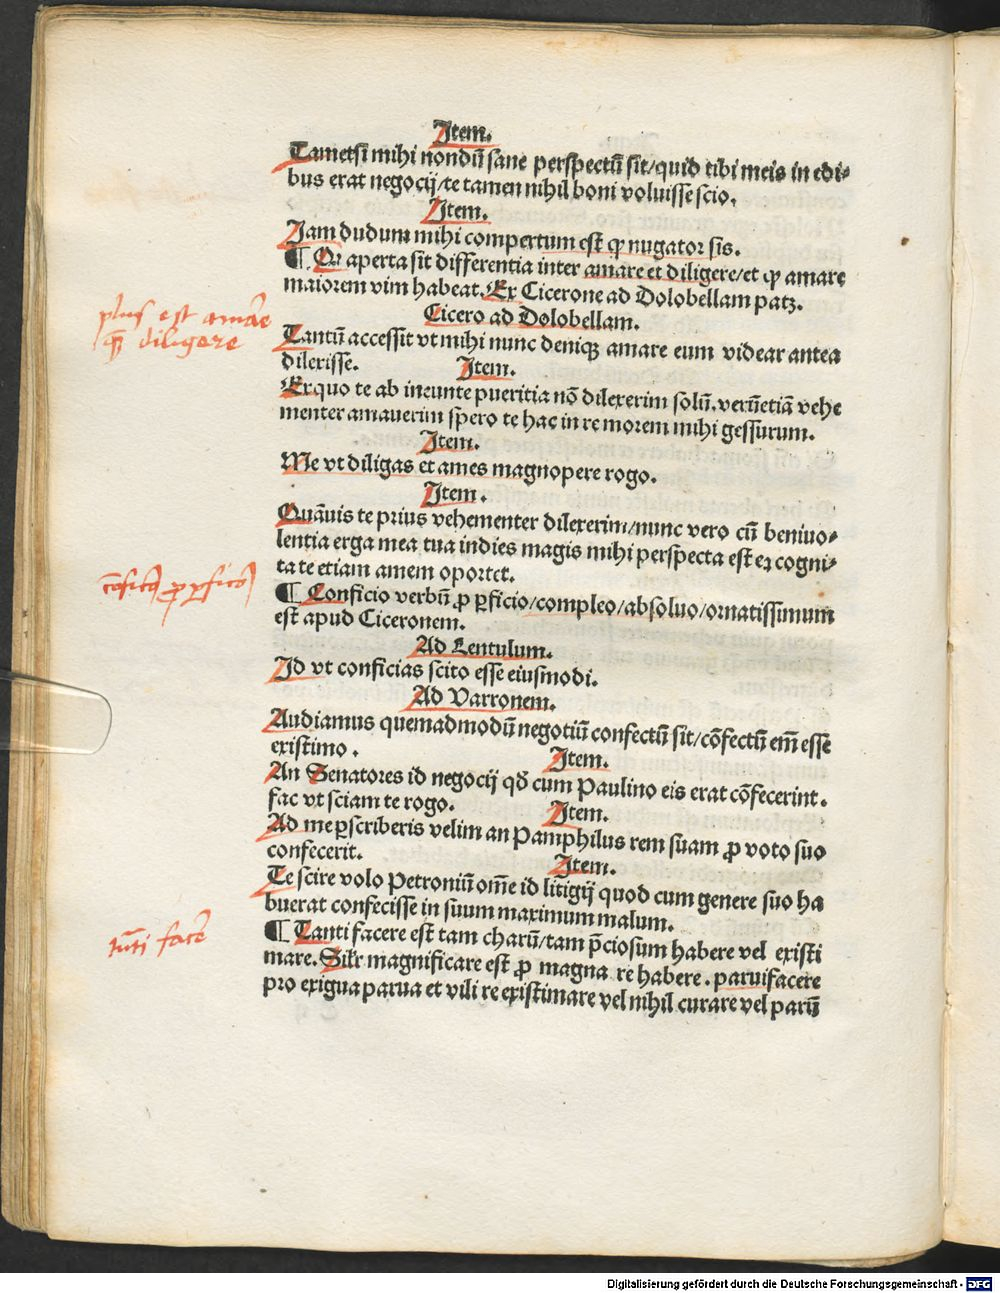 Item.
Tametsi mihi nondū sane perspectū sit/quid tibi meis in edi-
bus erat negocij/te tamen nihil boni voluisse scio.
Item.
Iam dudum mihi compertum est qꝫ nugator sis.
¶ Qꝫ aperta sit differentia inter amare et diligere/et qꝫ amare
maiorem vim habeat. Ex Cicerone ad Dolobellam patꝫ.
plus est amare
qꝫ diligere
Cicero ad Dolobellam.
Tantū accessit vt mihi nunc deniqꝫ amare eum videar antea
dilexisse. Item.
Ex quo te ab ineunte pueritia nō dilexerim solū. verūetiā vehe
menter amauerim spero te hac in re morem mihi gessurum.
Item.
Me vt diligas et ames magnopere rogo.
Item.
Quāuis te prius vehementer dilexerim/nunc vero cū beniuo-
lentia erga mea tua indies magis mihi perspecta est eꝫ cogni-
ta te etiam amem oportet.
¶ Conficio verbū ꝓ ꝑficio/compleo/absoluo/ornatissimum
est apud Ciceronem.
Ad Lentulum.
Id vt conficias scito esse eiusmodi.
Ad Varronem.
Audiamus quemadmodū negotiū confectū sit/cōfectū em̄ esse
existimo. Item.
An Senatores id negocij qd̄ cum Paulino eis erat cōfecerint.
fac vt sciam te rogo. Item.
Ad me ꝑscriberis velim an Pamphilus rem suam ꝓ voto suo
confecerit. Item.
Te scire volo Petroniū om̄e id litigij quod cum genere suo ha
buerat confecisse in suum maximum malum.
tāti facere
¶ Tanti facere est tam charū/tam p̄ciosum habere vel existi
mare. Silr magnificare est ꝓ magna re habere. paruifacere
pro exigua parua et vili re existimare vel nihil curare vel parū
Digitalisierung gefördert durch die Deutsche Forschungsgemeinschaft - DFG